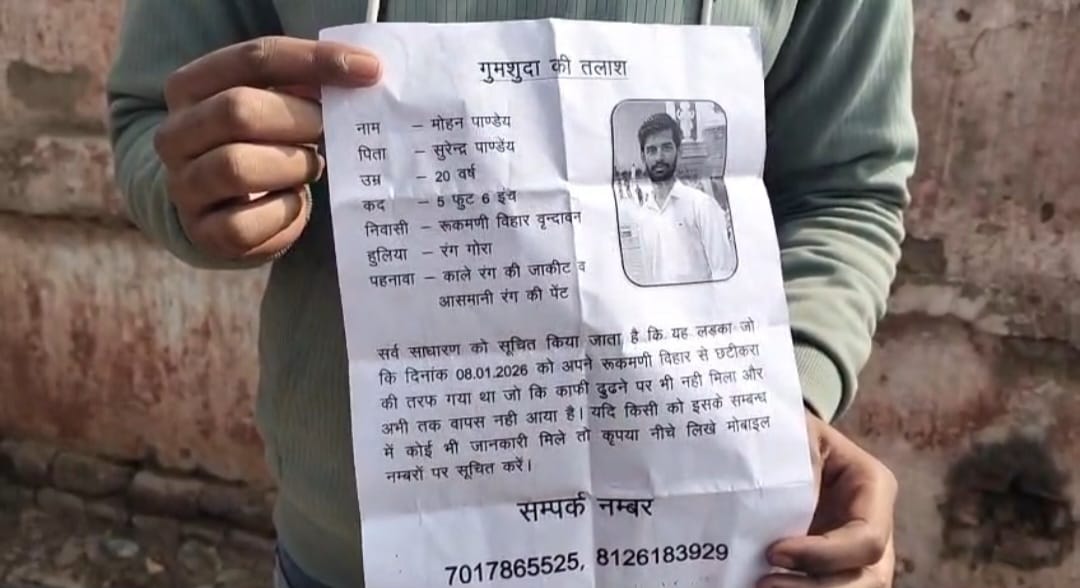 गुमशुदा की तलाश
नाम – मोहन पाण्डेय
पिता – सुरेन्द्र पाण्डेय
उम्र – 20 वर्ष
कद – 5 फुट 6 इंच
निवासी – रूकमणी विहार वृन्दावन
हुलिया – रंग गोरा
पहनावा – काले रंग की जाकीट व
आसमानी रंग की पेंट
सर्व साधारण को सूचित किया जाता है कि यह लड़का जो
कि दिनांक 08.01.2026 को अपने रूकमणी विहार से छटीकरा
की तरफ गया था जो कि काफी ढुढने पर भी नही मिला और
अभी तक वापस नही आया है। यदि किसी को इसके सम्बन्ध
में कोई भी जानकारी मिले तो कृपया नीचे लिखे मोबाइल
नम्बरों पर सूचित करें।
सम्पर्क नम्बर
7017865525, 8126183929